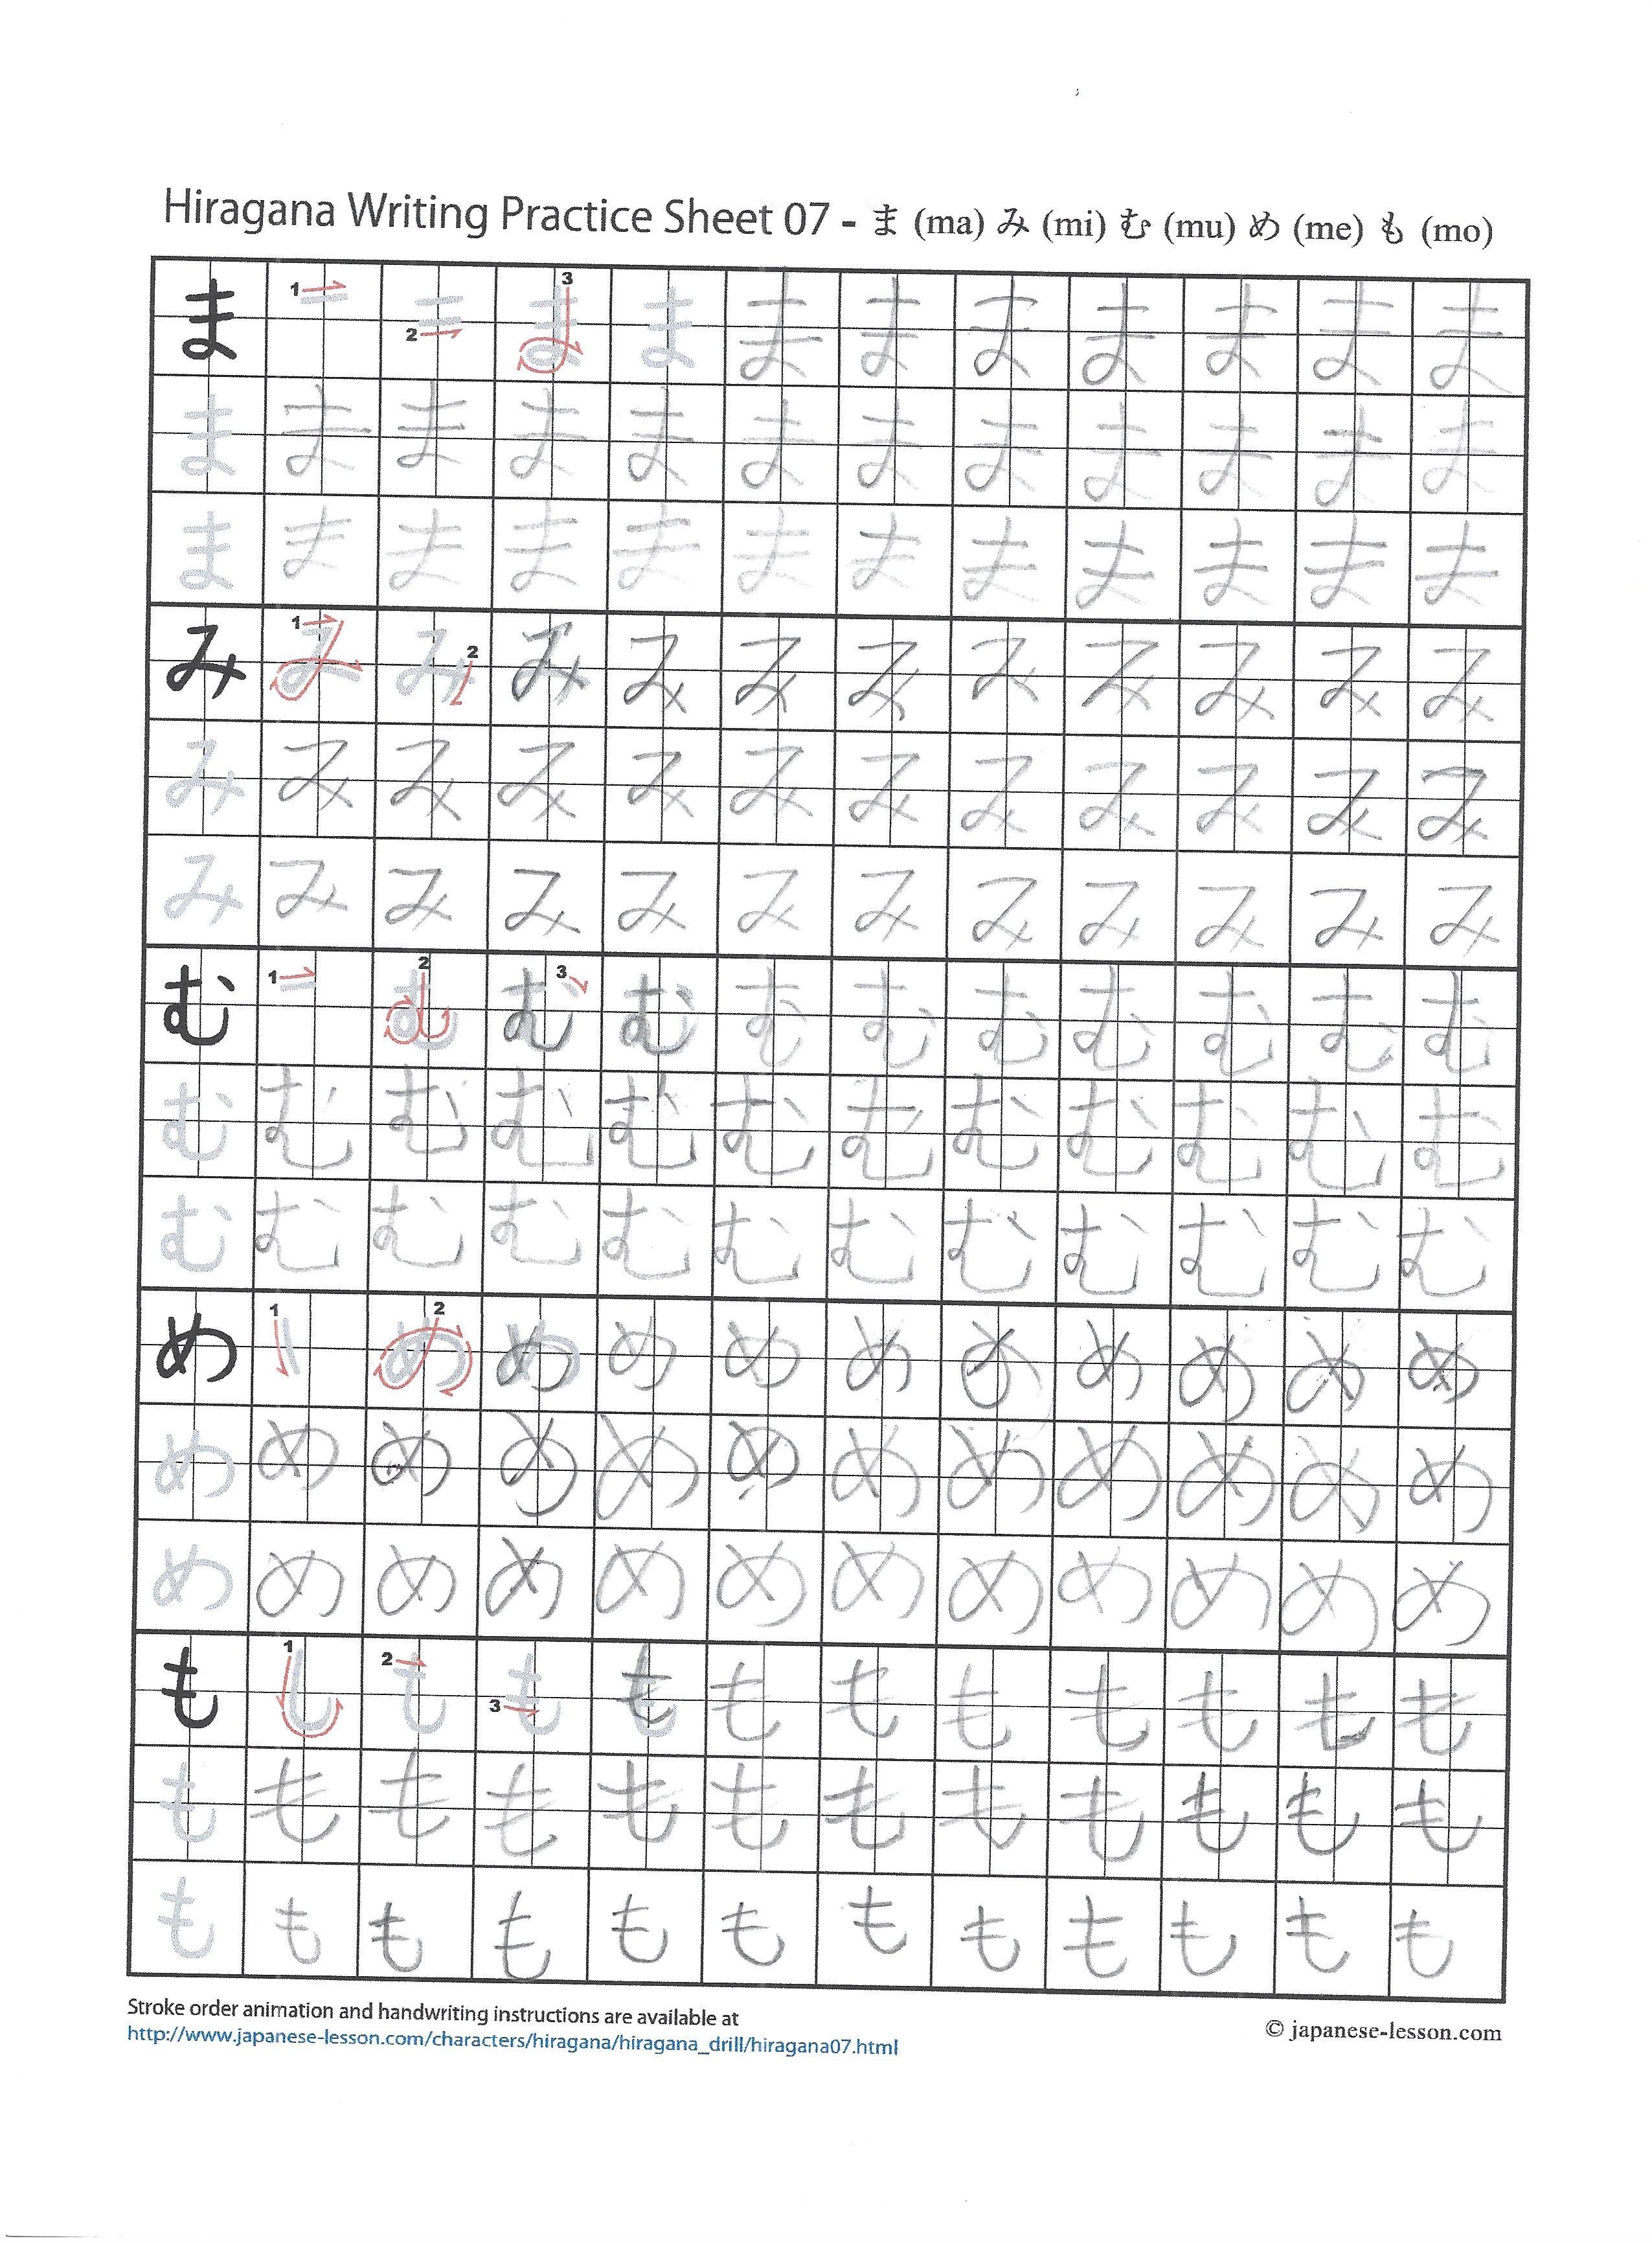 Hiragana Writing Practice Sheet 07 - ま (ma) み (mi) む (mu) め (me) も (mo)
ま 1 2 3 ま ま ま ま ま ま ま ま ま
ま ま ま ま ま ま ま ま ま ま ま ま
ま ま ま ま ま ま ま ま ま ま ま ま
み 1 み 2 み み み み み み み み み み
み み み み み み み み み み み み
み み み み み み み み み み み み
む 1 2 む 3 む む む む む む む む む
む む む む む む む む む む む む
む む む む む む む む む む む む
め 1 2 め め め め め め め め め め
め め め め め め め め め め め め
め め め め め め め め め め め め
も 1 2 3 も も も も も も も も も
も も も も も も も も も も も も
も も も も も も も も も も も も
Stroke order animation and handwriting instructions are available at
http://www.japanese-lesson.com/characters/hiragana/hiragana_drill/hiragana07.html
© japanese-lesson.com